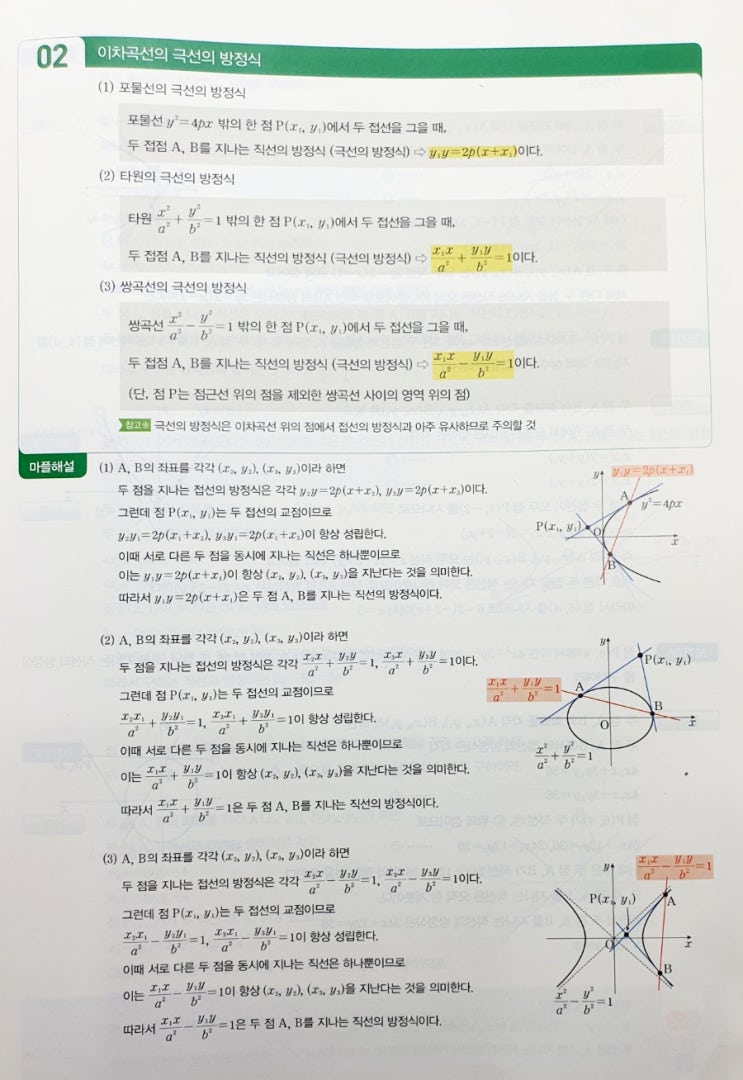 02 이차곡선의 극선의 방정식
(1) 포물선의 극선의 방정식
포물선 y²=4px 밖의 한 점 P(x₁, y₁)에서 두 접선을 그을 때,
두 접점 A, B를 지나는 직선의 방정식 (극선의 방정식) ⇨ y₁y=2p(x+x₁)이다.
(2) 타원의 극선의 방정식
타원 x²/a²+y²/b²=1 밖의 한 점 P(x₁, y₁)에서 두 접선을 그을 때,
두 접점 A, B를 지나는 직선의 방정식 (극선의 방정식) ⇨ x₁x/a²+y₁y/b²=1이다.
(3) 쌍곡선의 극선의 방정식
쌍곡선 x²/a²-y²/b²=1 밖의 한 점 P(x₁, y₁)에서 두 접선을 그을 때,
두 접점 A, B를 지나는 직선의 방정식 (극선의 방정식) ⇨ x₁x/a²-y₁y/b²=1이다.
(단, 점 P는 점근선 위의 점을 제외한 쌍곡선 사이의 영역 위의 점)
참고☆ 극선의 방정식은 이차곡선 위의 점에서 접선의 방정식과 아주 유사하므로 주의할 것
마플해설
(1) A, B의 좌표를 각각 (x₂, y₂), (x₃, y₃)이라 하면
두 점을 지나는 접선의 방정식은 각각 y₂y=2p(x+x₂), y₃y=2p(x+x₃)이다.
그런데 점 P(x₁, y₁)는 두 접선의 교점이므로
y₂y₁=2p(x₁+x₂), y₃y₁=2p(x₁+x₃)이 항상 성립한다.
이때 서로 다른 두 점을 동시에 지나는 직선은 하나뿐이므로
이는 y₁y=2p(x+x₁)이 항상 (x₂, y₂), (x₃, y₃)을 지난다는 것을 의미한다.
따라서 y₁y=2p(x+x₁)은 두 점 A, B를 지나는 직선의 방정식이다.
y₁y=2p(x+x₁)
y
A
y²=4px
P(x₁, y₁)
O
x
B
(2) A, B의 좌표를 각각 (x₂, y₂), (x₃, y₃)이라 하면
두 점을 지나는 접선의 방정식은 각각 x₂x/a²+y₂y/b²=1, x₃x/a²+y₃y/b²=1이다.
그런데 점 P(x₁, y₁)는 두 접선의 교점이므로
x₂x₁/a²+y₂y₁/b²=1, x₃x₁/a²+y₃y₁/b²=1이 항상 성립한다.
이때 서로 다른 두 점을 동시에 지나는 직선은 하나뿐이므로
이는 x₁x/a²+y₁y/b²=1이 항상 (x₂, y₂), (x₃, y₃)을 지난다는 것을 의미한다.
따라서 x₁x/a²+y₁y/b²=1은 두 점 A, B를 지나는 직선의 방정식이다.
y
P(x₁, y₁)
x₁x/a²+y₁y/b²=1
A
B
O
x
x²/a²+y²/b²=1
(3) A, B의 좌표를 각각 (x₂, y₂), (x₃, y₃)이라 하면
두 점을 지나는 접선의 방정식은 각각 x₂x/a²-y₂y/b²=1, x₃x/a²-y₃y/b²=1이다.
그런데 점 P(x₁, y₁)는 두 접선의 교점이므로
x₂x₁/a²-y₂y₁/b²=1, x₃x₁/a²-y₃y₁/b²=1이 항상 성립한다.
이때 서로 다른 두 점을 동시에 지나는 직선은 하나뿐이므로
이는 x₁x/a²-y₁y/b²=1이 항상 (x₂, y₂), (x₃, y₃)을 지난다는 것을 의미한다.
따라서 x₁x/a²-y₁y/b²=1은 두 점 A, B를 지나는 직선의 방정식이다.
x₁x/a²-y₁y/b²=1
y
P(x₁, y₁)
A
O
x
B
x²/a²-y²/b²=1